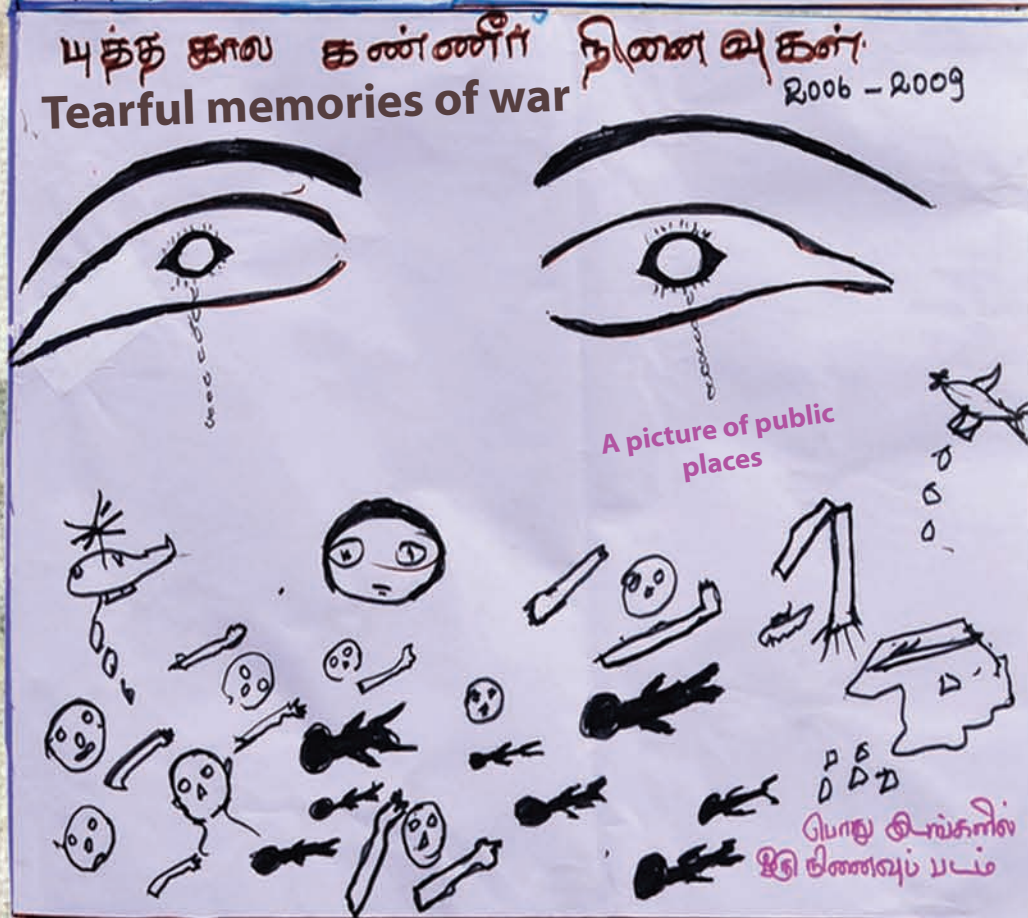 யுத்த கால கண்ணீர் நினைவுகள்.
2006 - 2009
Tearful memories of war
A picture of public
places
பொது இடங்களில்
ஒரு நிணைவுப் படம்